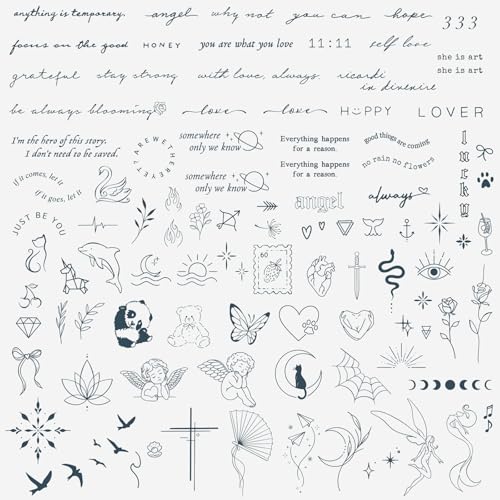 anything is temporary.
angel
why not
you can
hope
333
focus on the good
HONEY
you are what you love
11:11
self love
she is art
she is art
grateful
stay strong
with love, always.
ricordi
in divenire
be always blooming
love
love
HAPPY
LOVER
I'm the hero of this story.
I don't need to be saved.
AREWETHEREYET
somewhere
only we know
somewhere
only we know
Everything happens
for a reason.
Everything happens
for a reason.
good things are coming
no rain no flowers
lucky
if it comes, let it
if it goes, let it
angel
always
JUST BE YOU
60